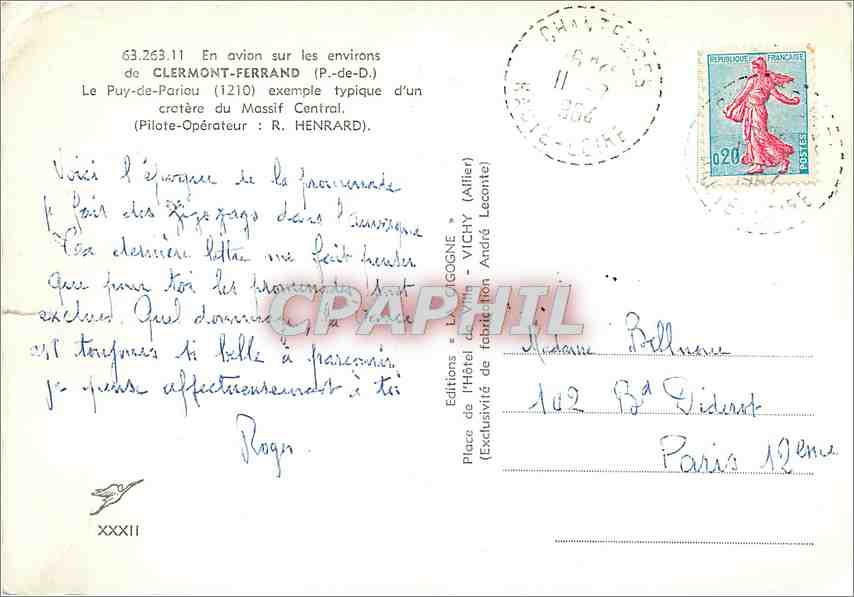 63.263.11 En avion sur les environs
de CLERMONT-FERRAND (P.-de-D.)
Le Puy-de-Pariou (1210) exemple typique d'un
cratère du Massif Central.
(Pilote-Opérateur : R. HENRARD).
Voici l'époque de la promenade
je fait des zigs zags dans l'auvergne
Ta dernière lettre me fait penser
que pour toi les promenades sont
exclues. Quel dommage la
est toujours si belle à parcourir
je pense affectueusement à toi
Roger
XXXII
Editions « LA CIGOGNE »
Place de l'Hôtel de Ville - VICHY (Allier)
(Exclusivité de fabrication André Leconte)
CHANTEUGES
11 - 7
1964
HAUTE-LOIRE
REPUBLIQUE FRANÇAISE
0,20
POSTES
Madame
102 Bd Diderot
Paris 12eme
CPAPHIL